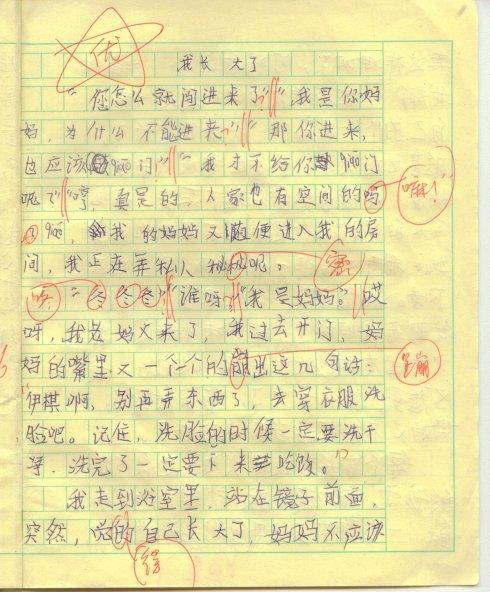 优
我长大了
"您怎么就闯进来了？""我是你妈
妈，为什么不能进来？""那你进来，
也应该qiao门！""我才不给你qiao门
呢？""哼，真是的，人家也有空间的吗
嘛！"
qiao，我的妈妈又随便进入我的房
间，我正在弄私人秘秘呢。
密
"冬冬冬""谁呀？""我是妈妈。"哎
咚
呀，我老妈又来了，我过去开门，妈
妈的嘴里又一个个的蹦出这几句话：
蹦
"伊棋啊，别再弄东西了，去穿衣服洗
脸吧。记住，洗脸的时候一定要洗干
净，洗完了一定要下来吃饭。"
我走到浴室里，站在镜子前面，
突然，觉的自己长大了，妈妈不应该
得